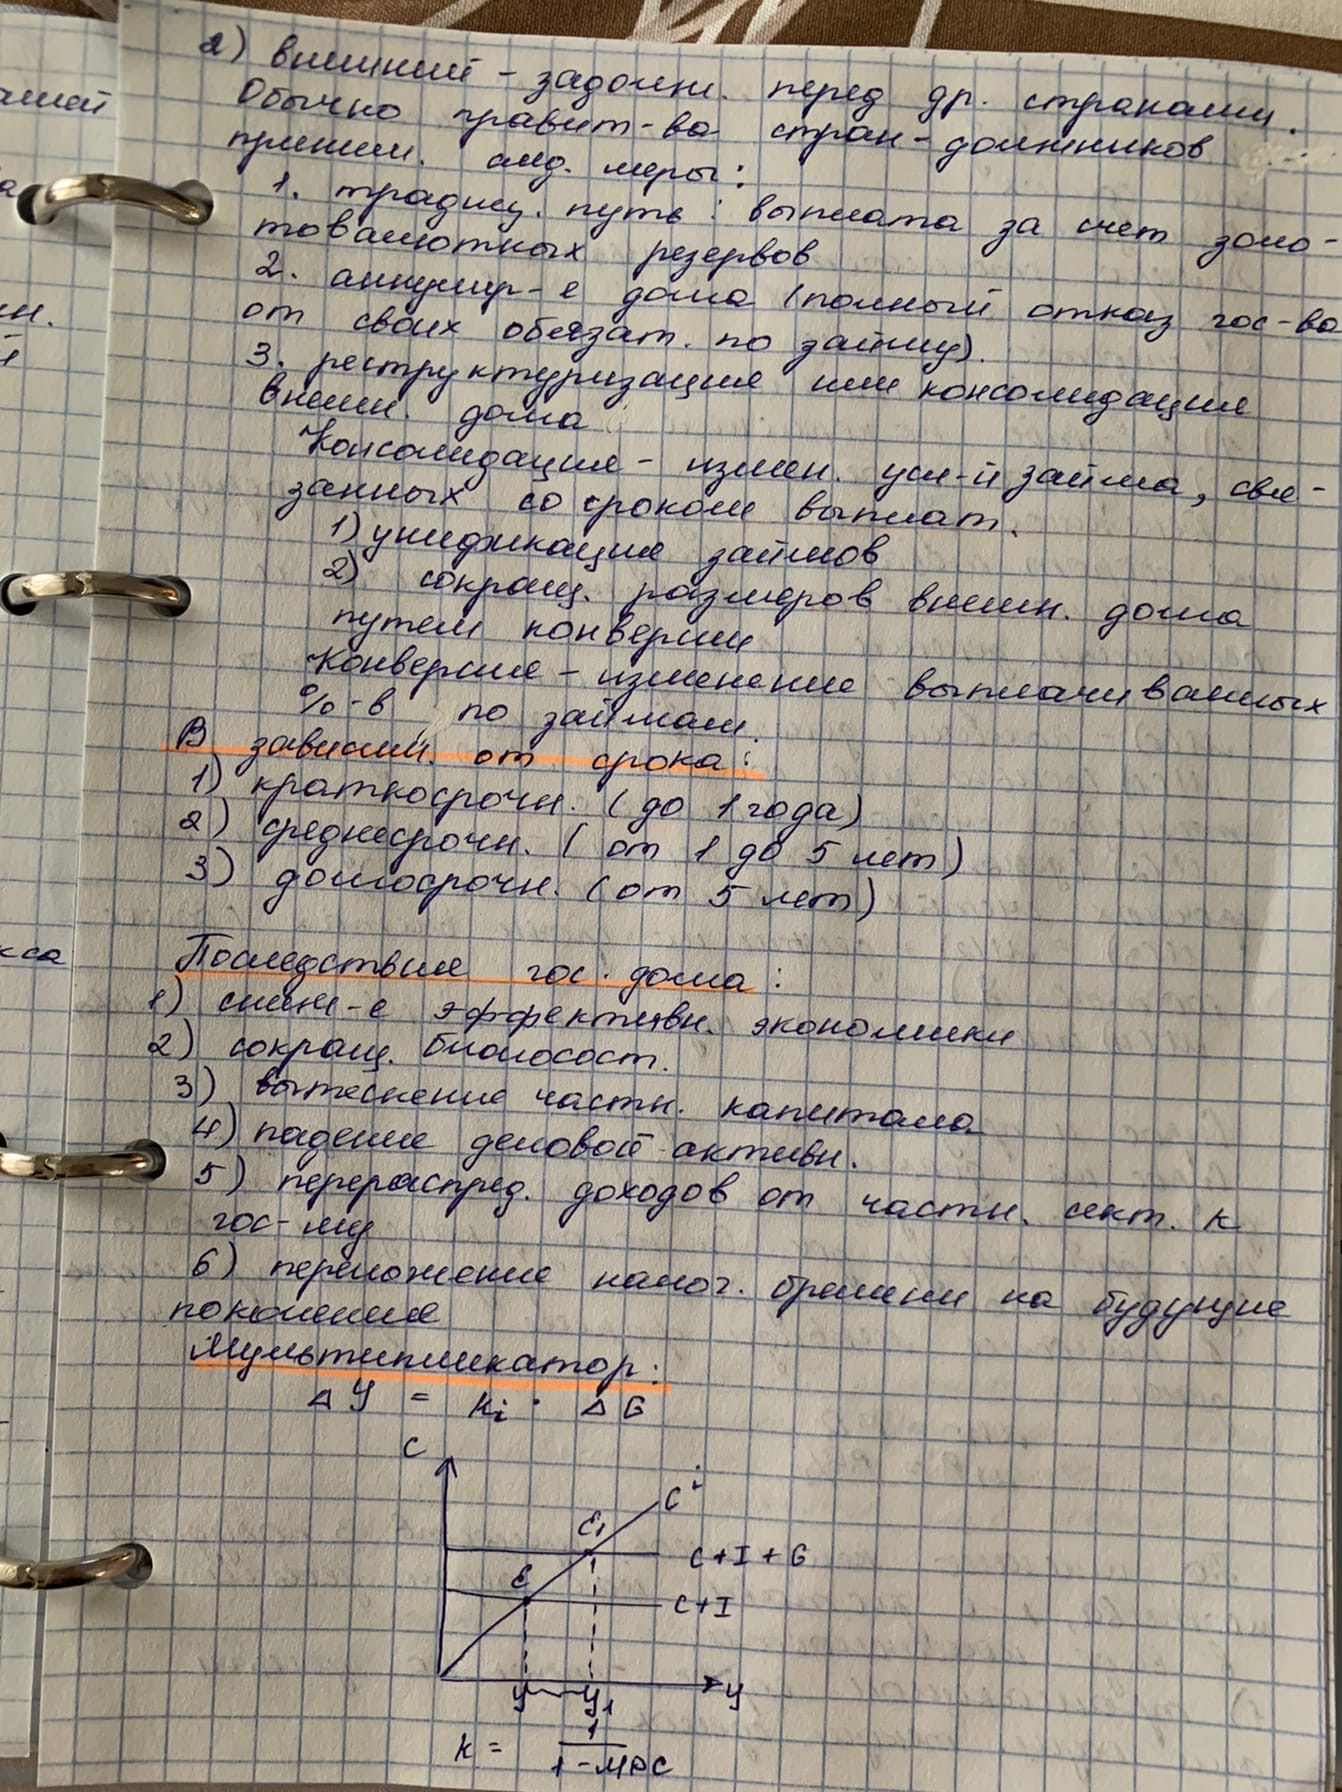 2) внешний - задолж. перед др. странами.
Обычно правит-ва стран-должников
приним. след. меры:
1. традиц. путь: выплата за счет золо-
товалютных резервов
2. аннулир-е долга (полный отказ гос-ва
от своих обязат. по займу).
3. реструктуризация или консолидация
внешн. долга
Консолидация - измен. усл-й займа, свя-
занных со сроком выплат.
1) унификация займов
2) сокращ. размеров внешн. долга
путем конверсии
Конверсия - изменение выплачиваемых
%-в по займам.
В зависим. от срока:
1) краткосрочн. (до 1 года)
2) среднесрочн. (от 1 до 5 лет)
3) долгосрочн. (от 5 лет)
Последствия гос. долга:
1) сниж-е эффективн. экономики
2) сокращ. благосост.
3) вытеснение частн. капитала
4) падение деловой активн.
5) перераспред. доходов от частн. сект. к
гос-му
6) переложение налог. бремени на будущие
поколения
Мультипликатор:
ΔY = Ki · ΔG
C
C
E1
C+I+G
E
C+I
y y1 y
K = 1
1-MPC
ашей
а
н.
кса